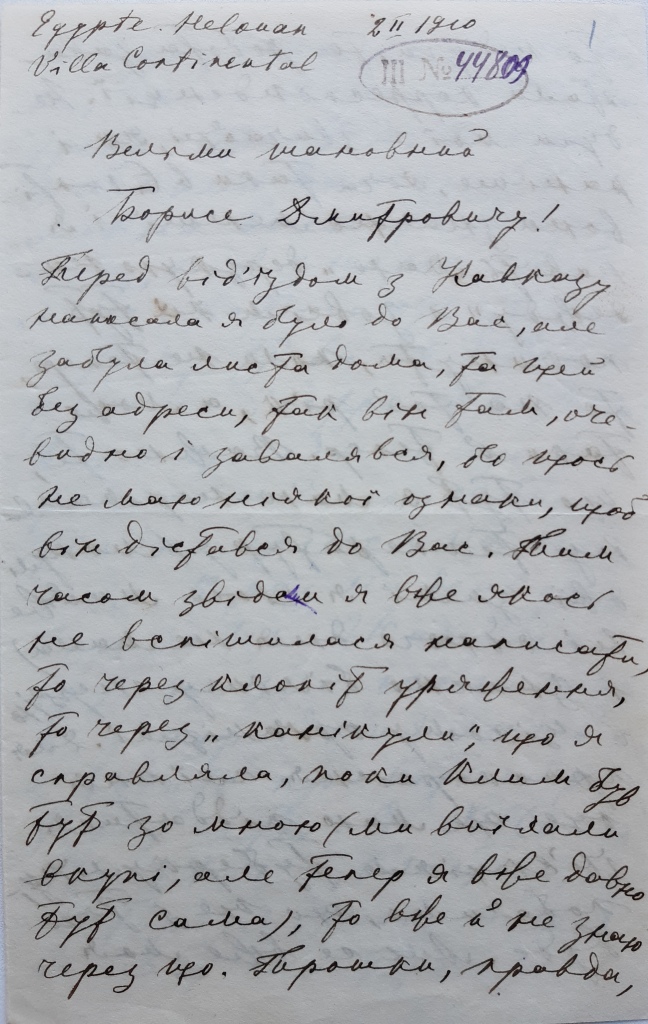 Egypte. Helouan 2 II 1910 1
Villa Continental
III № 44809
Вельми шановний
Борисе Дмитровичу!
Перед від'їздом з Кавказу
написала я було до Вас, але
забула листа дома, та щей
без адреси, так він там, оче-
видно і завалявся, бо щось
не маю ніякої ознаки, щоб
він дістався до Вас. Тим
часом звідси я вже якось
не вспішилася написати,
то через клопіт урядження,
то через „канікули", що я
справляла, поки Клим був
тут зо мною (ми виїхали
вкупі, але тепер я вже давно
тут сама), то вже й не знаю
через що. Трошки, правда,